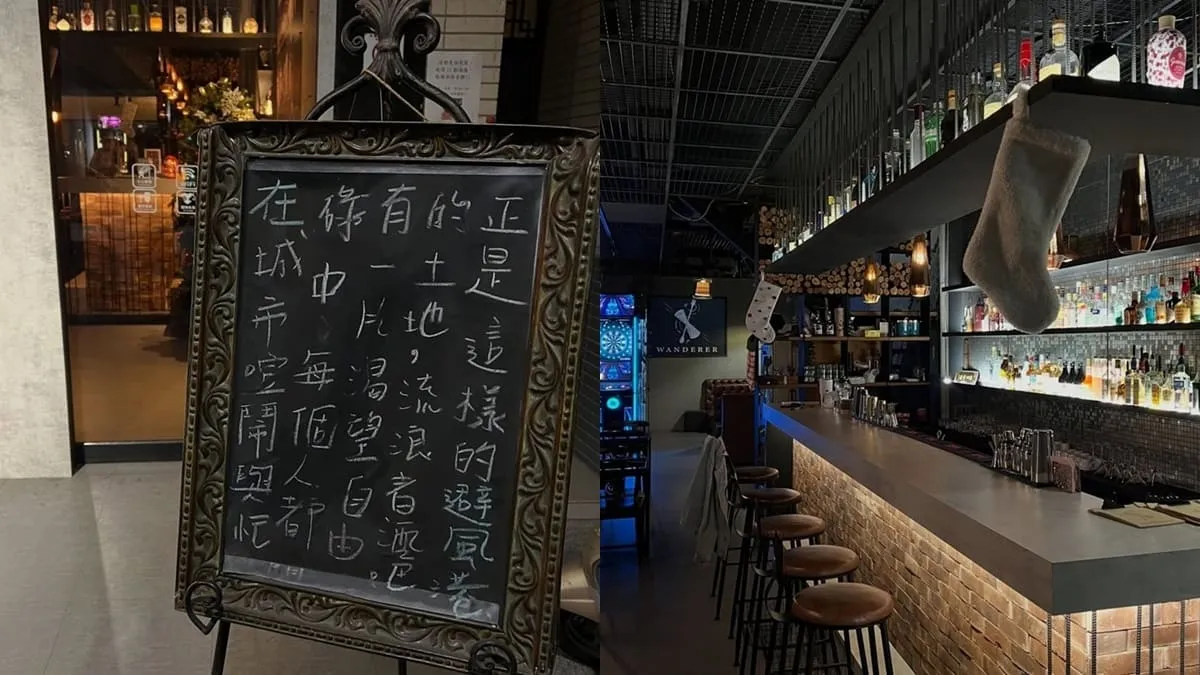 在城市喧鬧與忙
碌中每個人都
有一片渴望自由
的土地，流浪者酒吧。
正是這樣的避風港
WANDERER